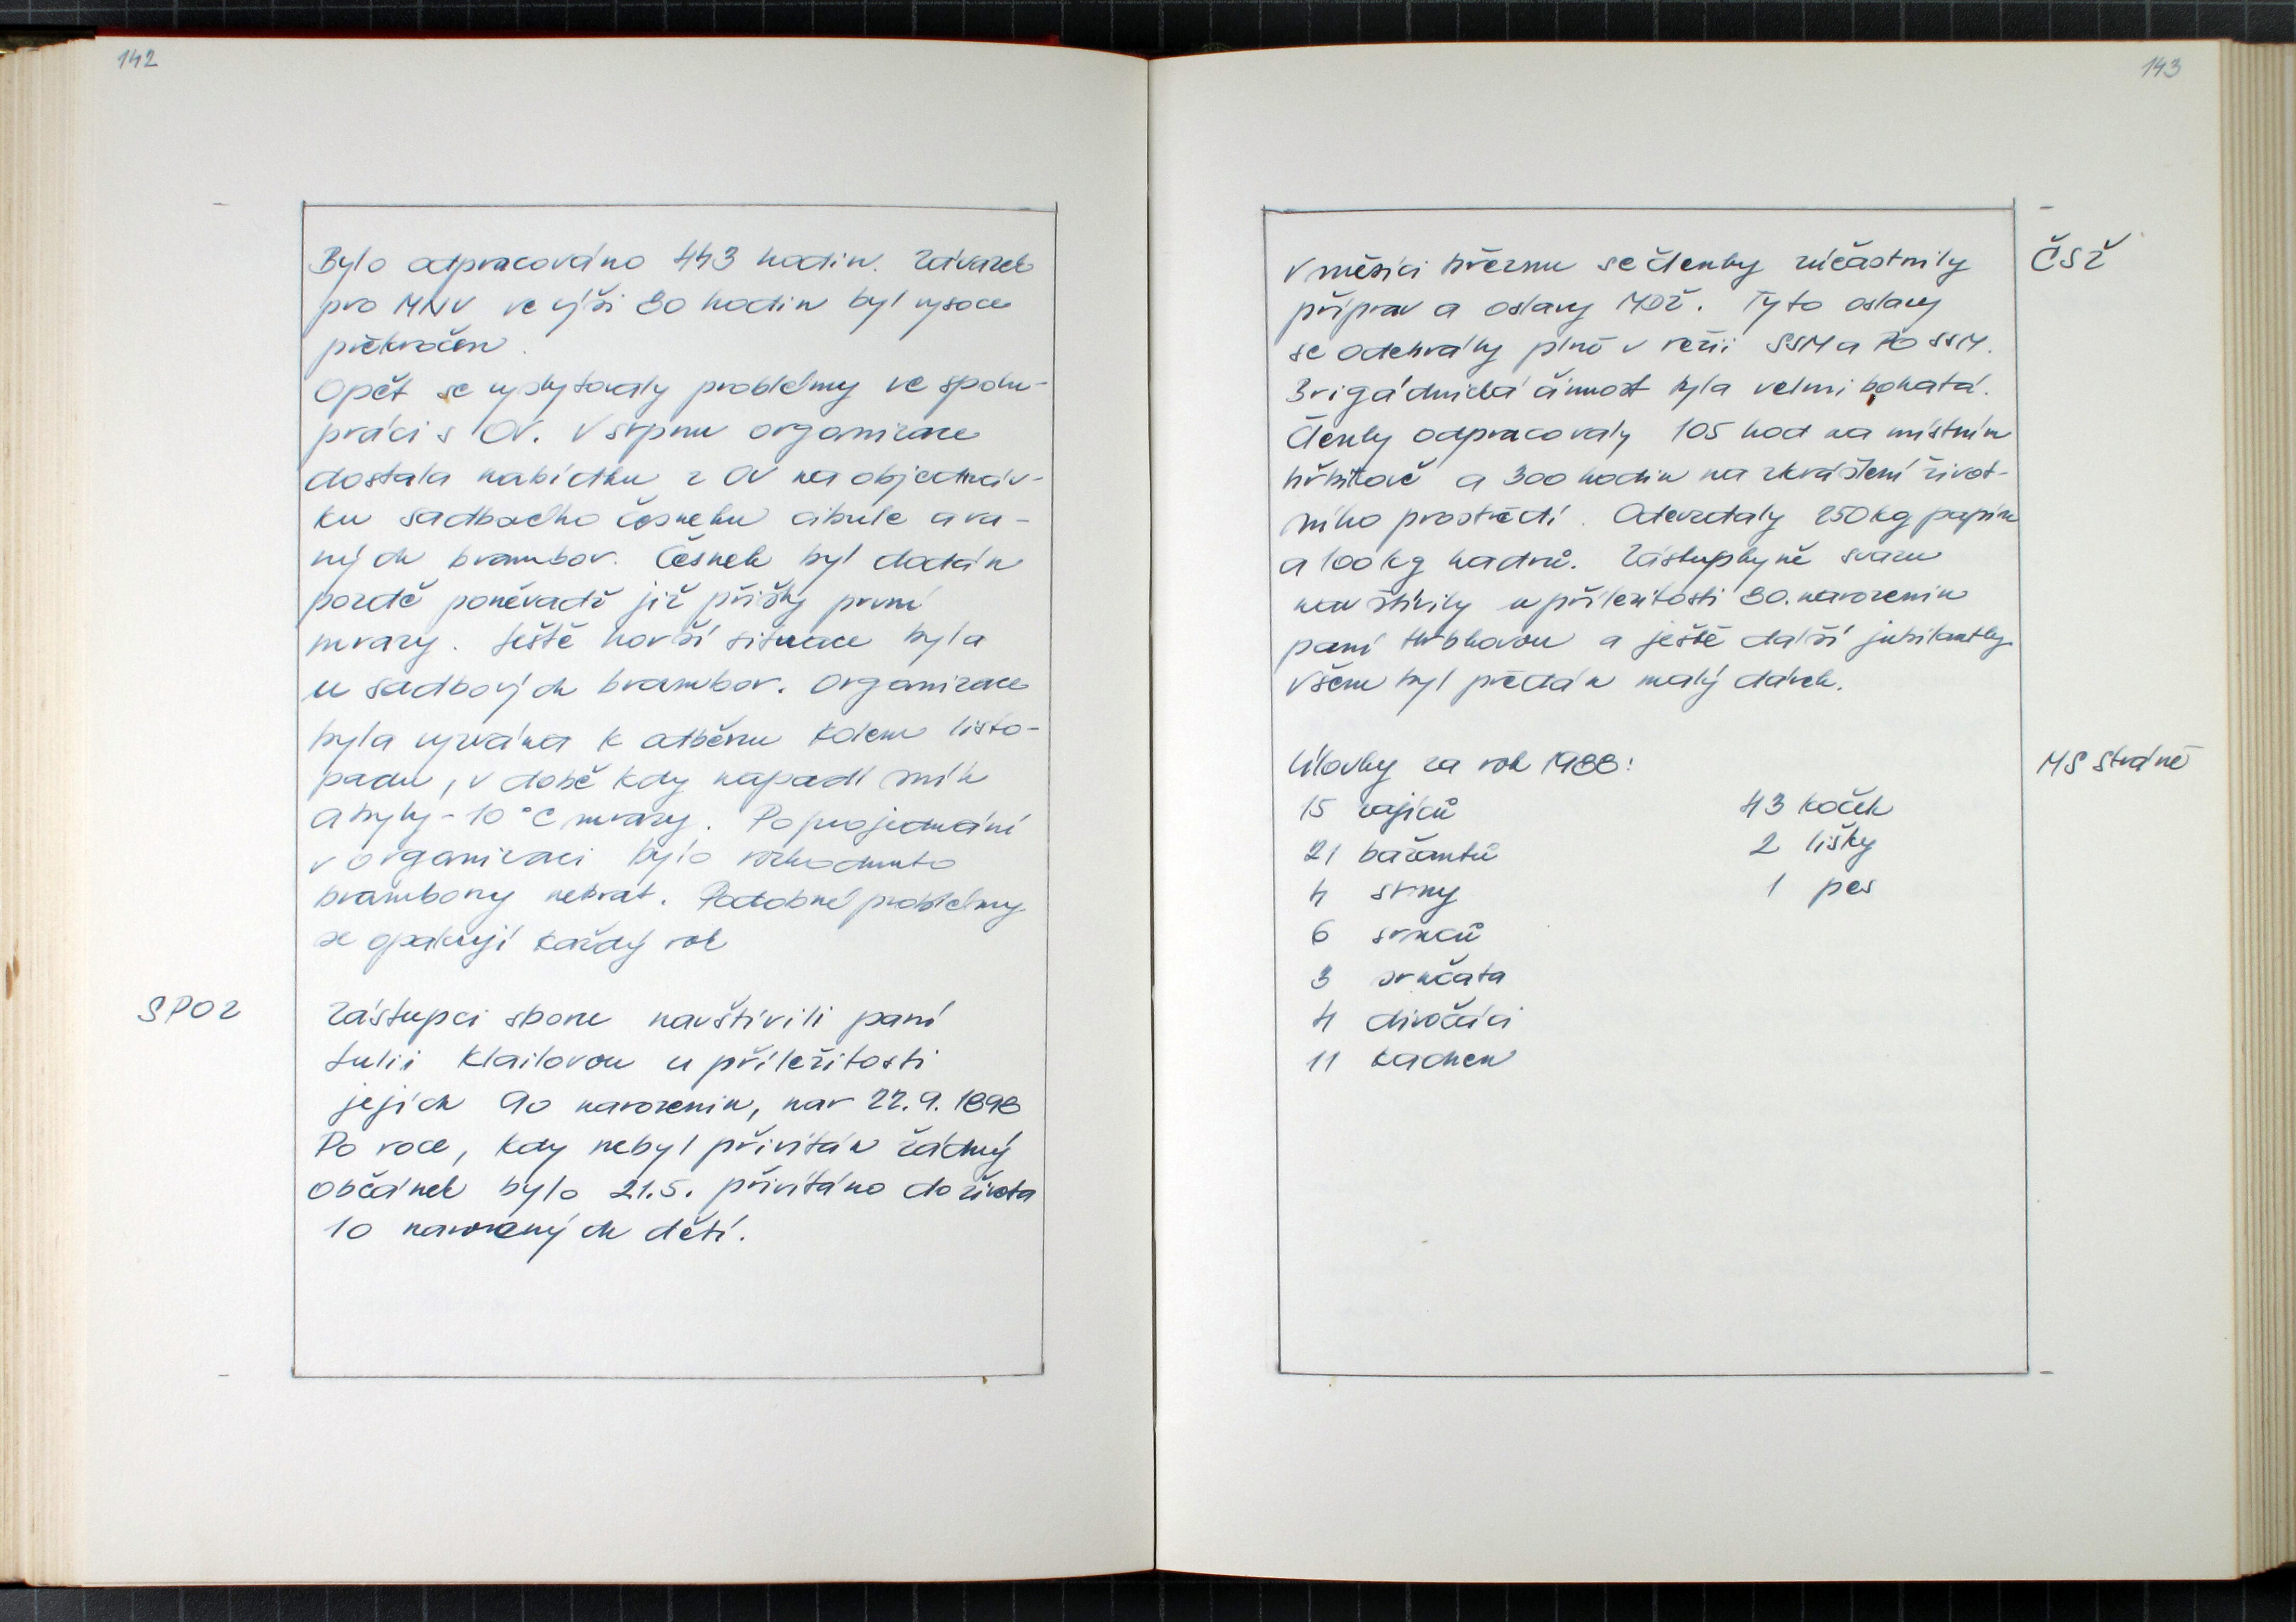 142
Bylo odpracováno 443 hodin. Závazek
pro MNV ve výši 80 hodin byl vysoce
překročen.
Opět se vyskytovaly problémy ve spolu-
práci s OV. V srpnu organizace
dostala nabídku z OV na objednáv-
ku sadbového česneku cibule a ra-
ných brambor. Česnek byl dodán
pozdě poněvadž již přišly první
mrazy. Ještě horší situace byla
u sadbových brambor. Organizace
byla vyzvána k odběru kolem listo-
padu, v době kdy napadl sníh
a byly -10°C mrazy. Po projednání
v organizaci bylo rozhodnuto
brambory nebrat. Podobné problémy
se opakují každý rok
SPOZ
Zástupci sboru navštívili paní
Julii Klailovou u příležitosti
jejích 90 narozenin, nar 22.9.1898
Po roce, kdy nebyl přivítán žádný
občánek bylo 21.5. přivítáno do života
10 narozených dětí.
143
V měsíci březnu se členky zúčastnily
ČSŽ
příprav a oslavy MDŽ. Tyto oslavy
se odehrály plně v režii SSM a PO SSM.
Brigádnická činnost byla velmi bohatá.
Členky odpracovaly 105 hod na místním
hřbitově a 300 hodin na zkrášlení život-
ního prostředí. Odevzdaly 250kg papíru
a 100kg hadrů. Zástupkyně svazu
navštívily u příležitosti 80. narozenin
paní a ještě další jubilantky.
Všem byl předán malý dárek.
Úlovky za rok 1988:
MS Stráně
15 zajíců 43 koček
21 bažantů 2 lišky
4 srny 1 pes
6 srnců
3 srnčata
4 divočáci
11 kachen